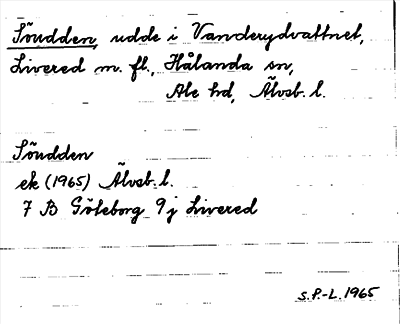 Söudden, udde i Vanderydvattnet,
Livered m. fl., Hålanda sn,
Ale hd, Älvsb. l.
Söudden
ek (1965) Älvsb. l.
7 B Göteborg 9 j Livered
S.P.-L. 1965